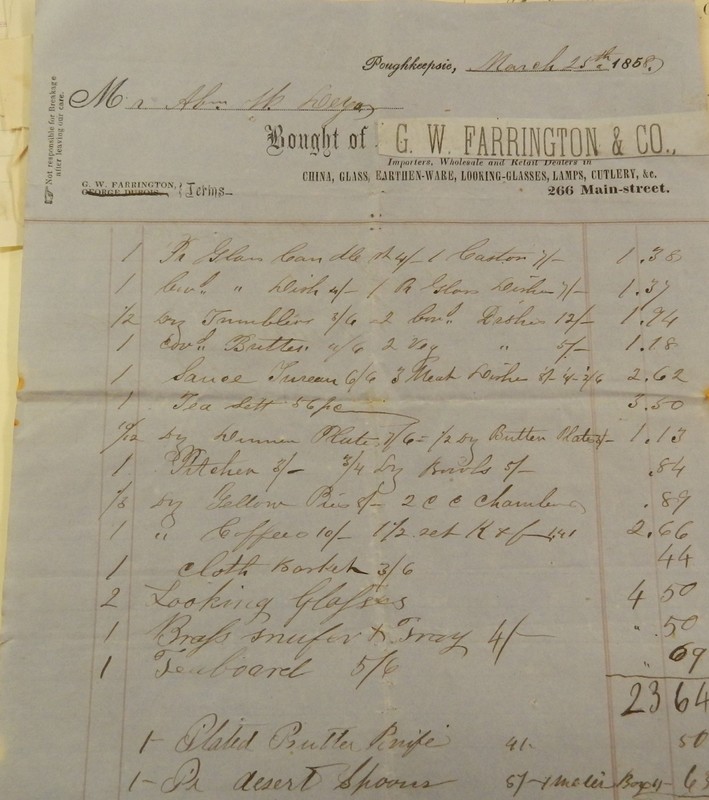 Poughkeepsie, March 25th 1858.
Not responsible for Breakage
after leaving our care.
Mr Abm W Deyo
Bought of G. W. FARRINGTON & CO.,
Importers, Wholesale and Retail Dealers in
CHINA, GLASS, EARTHEN-WARE, LOOKING-GLASSES, LAMPS, CUTLERY, &c.
G. W. FARRINGTON,
GEORGE DUBOIS. } Terms
266 Main-street.
1 Pr Glass Candle st 4/- 1 Castor 7/- 1.38
1 Covd " Dish 4/- 1 Pr Glass Dishes 7/- 1.37
1/2 Dz Tumblers 3/6 2 Covd Dishes 12/- 1.94
1 Covd Butter 4/6 2 Veg " 5/- 1.18
1 Sauce Tureen 6/6 3 Meat Dishes 2.62
1 Tea Sett 56 pc 3.50
Dz Dinner Plates 7/6 1/2 Dz Butter Plates 1.13
1 Pitcher 3/- 3/4 Dz Bowls 5/- .84
Dz Yellow Pies 8/- 2 C C Chambers .89
1 " Coffees 10/- 1 1/2 set K & f 2.66
1 cloth Basket 3/6 44
2 Looking Glasses 4 50
1 Brass snufer & Tray 4/- " 50
1 Teaboard 5/6 " 69
23 64
1 - Plated Butter Knife 4/- 50
1 - Pr desert Spoons 5/- 63